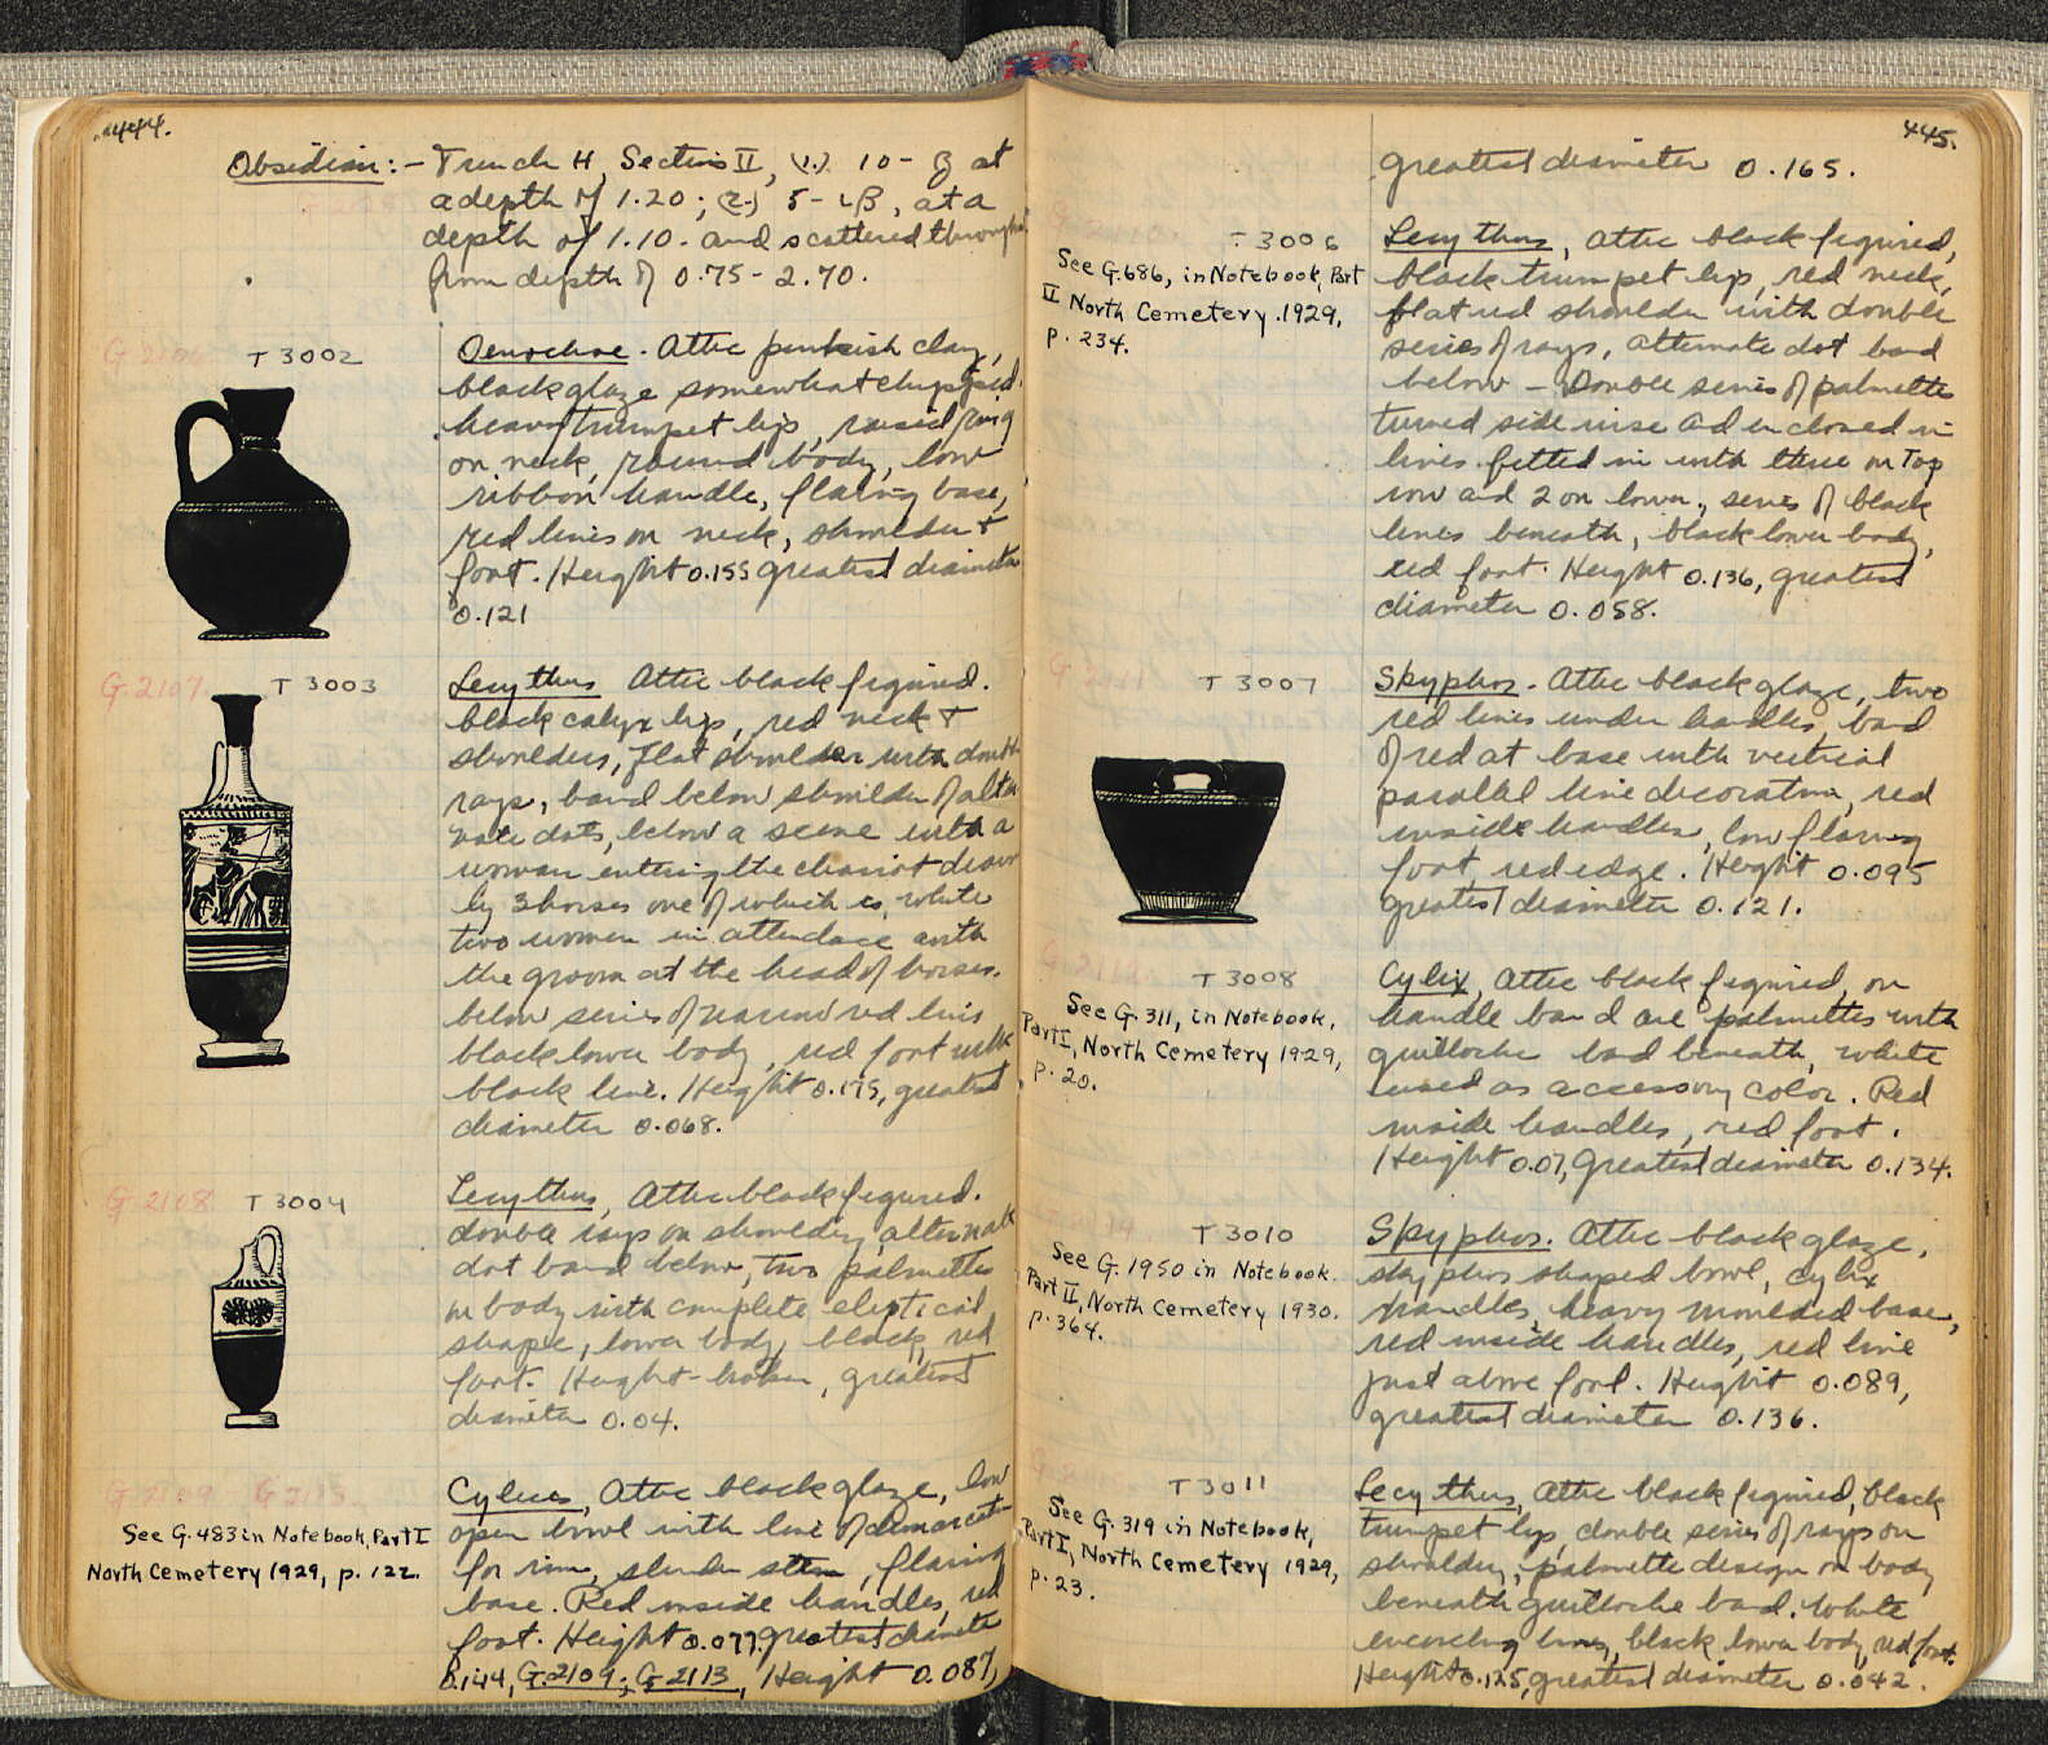 444.
Obsidian:- Trench H, Section II, (1.) 10- at
a depth of 1.20; (2.) 5-ιβ, at a
depth of 1.10. and scattered through
from depth of 0.75-2.70.
G 2106 T 3002
Oenochoe. Attic pinkish clay,
black glaze somewhat chipped.
heavy trumpet lip, raised ring
on neck, round body, low
ribbon handle, flaring base,
red lines on neck, shoulder +
foot. Height 0.155 greatest diameter
0.121
G 2107 T 3003
Lecythus Attic black figured.
black calyx lip, red neck +
shoulders, flat shoulder with double
rays, band below shoulder of alter
nate dots, below a scene with a
woman entering the chariot drawn
by 3 horses one of which is white
two women in attendace with
the groom at the head of horses.
below series of narrow red lines
black lower body, red foot with
black line. Height 0.175, greatest
diameter 0.068.
G 2108 T 3004
Lecythus, Attic black figured.
double rays on shoulder, alternate
dot band below, two palmettes
on body with complete eliptical
shape, lower body, black, red
foot. Height-broken, greatest
diameter 0.04.
G 2109 G 2113
See G.483 in Notebook, Part I
North Cemetery 1929, p. 122.
Cylices, Attic black glaze, low
open bowl with line of demarcation
for rim, slender stem, flaring
base. Red inside handles, red
foot. Height 0.077, greatest diameter
0.144, G.2109; G 2113, Height 0.087,
445.
greatest diameter 0.165.
T 3006
See G.686, in Notebook, Part
II North Cemetery. 1929,
p. 234.
Lecythus, Attic black figured,
black trumpet lip, red neck,
flat red shoulder with double
series of rays, alternate dot band
below - Double series of palmettes
turned side wise and enclosed in
lines. fitted in with three on top
row and 2 on lower, series of black
lines beneath, black lower body,
red foot. Height 0.136, greatest
diameter 0.058.
T 3007
Skyphos. Attic black glaze, two
red lines under handles, band
of red at base with vertical
parallel line decoration, red
inside handles, low flaring
foot, red edge. Height 0.095
greatest diameter 0.121.
T 3008
See G.311, in Notebook,
Part I, North Cemetery 1929,
p. 20.
Cylix, Attic black figured, on
handle band are palmettes with
guilloche band beneath, white
used as accessory color. Red
inside handles, red foot.
Height 0.07, Greatest diameter 0.134.
T 3010
See G.1950 in Notebook.
Part II, North Cemetery 1930.
p. 364.
Skyphos. Attic black glaze,
skyphos shaped bowl, cylix
handles, heavy moulded base,
red inside handles, red line
just above foot. Height 0.089,
greatest diameter 0.136.
T 3011
See G.319 in Notebook,
Part I, North Cemetery 1929,
p. 23.
Lecythus, Attic black figured, black
trumpet lip, double series of rays on
shoulder, palmette design on body
beneath guilloche band. White
encircling lines, black lower body, red foot.
Height 0.125, greatest diameter 0.042.